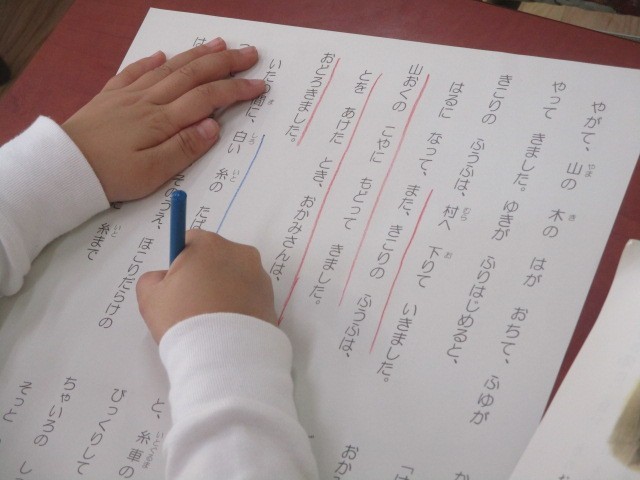 やがて、山の 木の はが おちて、ふゆが
やって きました。ゆきが ふりはじめると、
きこりの ふうふは、村へ 下りて いきました。
はるに なって、また、きこりの ふうふは、
山おくの こやに もどって きました。
とを あけた とき、おかみさんは、
おどろきました。
いたの間に、白い 糸の たば
そのうえ、ほこりだらけの
糸まで
か
「は
おか
と、糸車の
びっくりして
ちゃいろの し
そっと